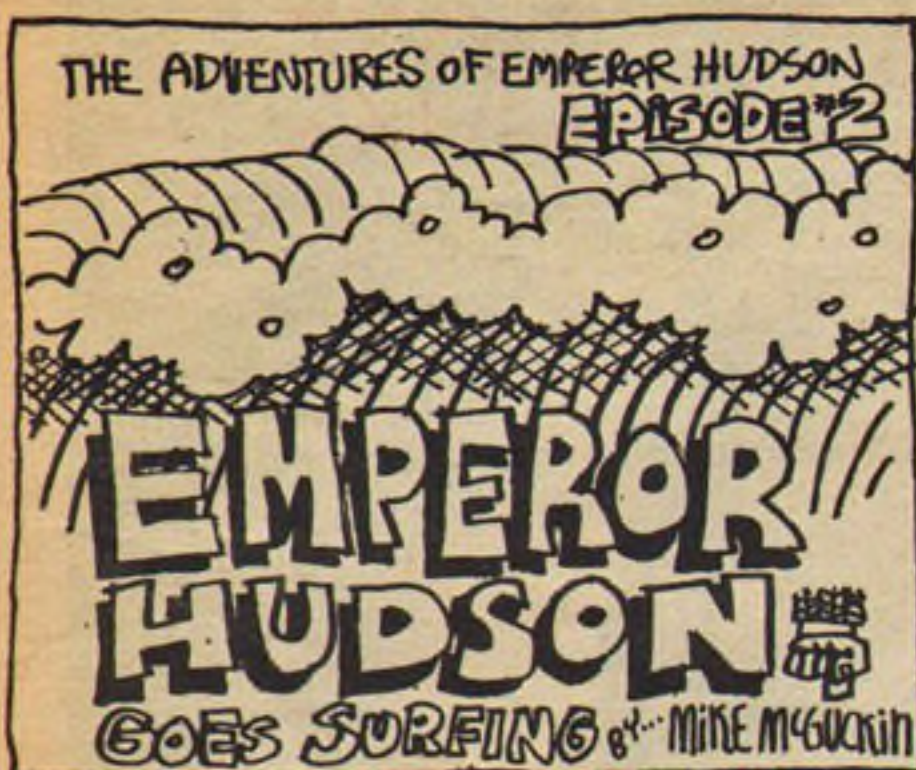 THE ADVENTURES OF EMPEROR HUDSON
EPISODE #2
EMPEROR
HUDSON
GOES SURFING BY... MIKE McGUCKIN